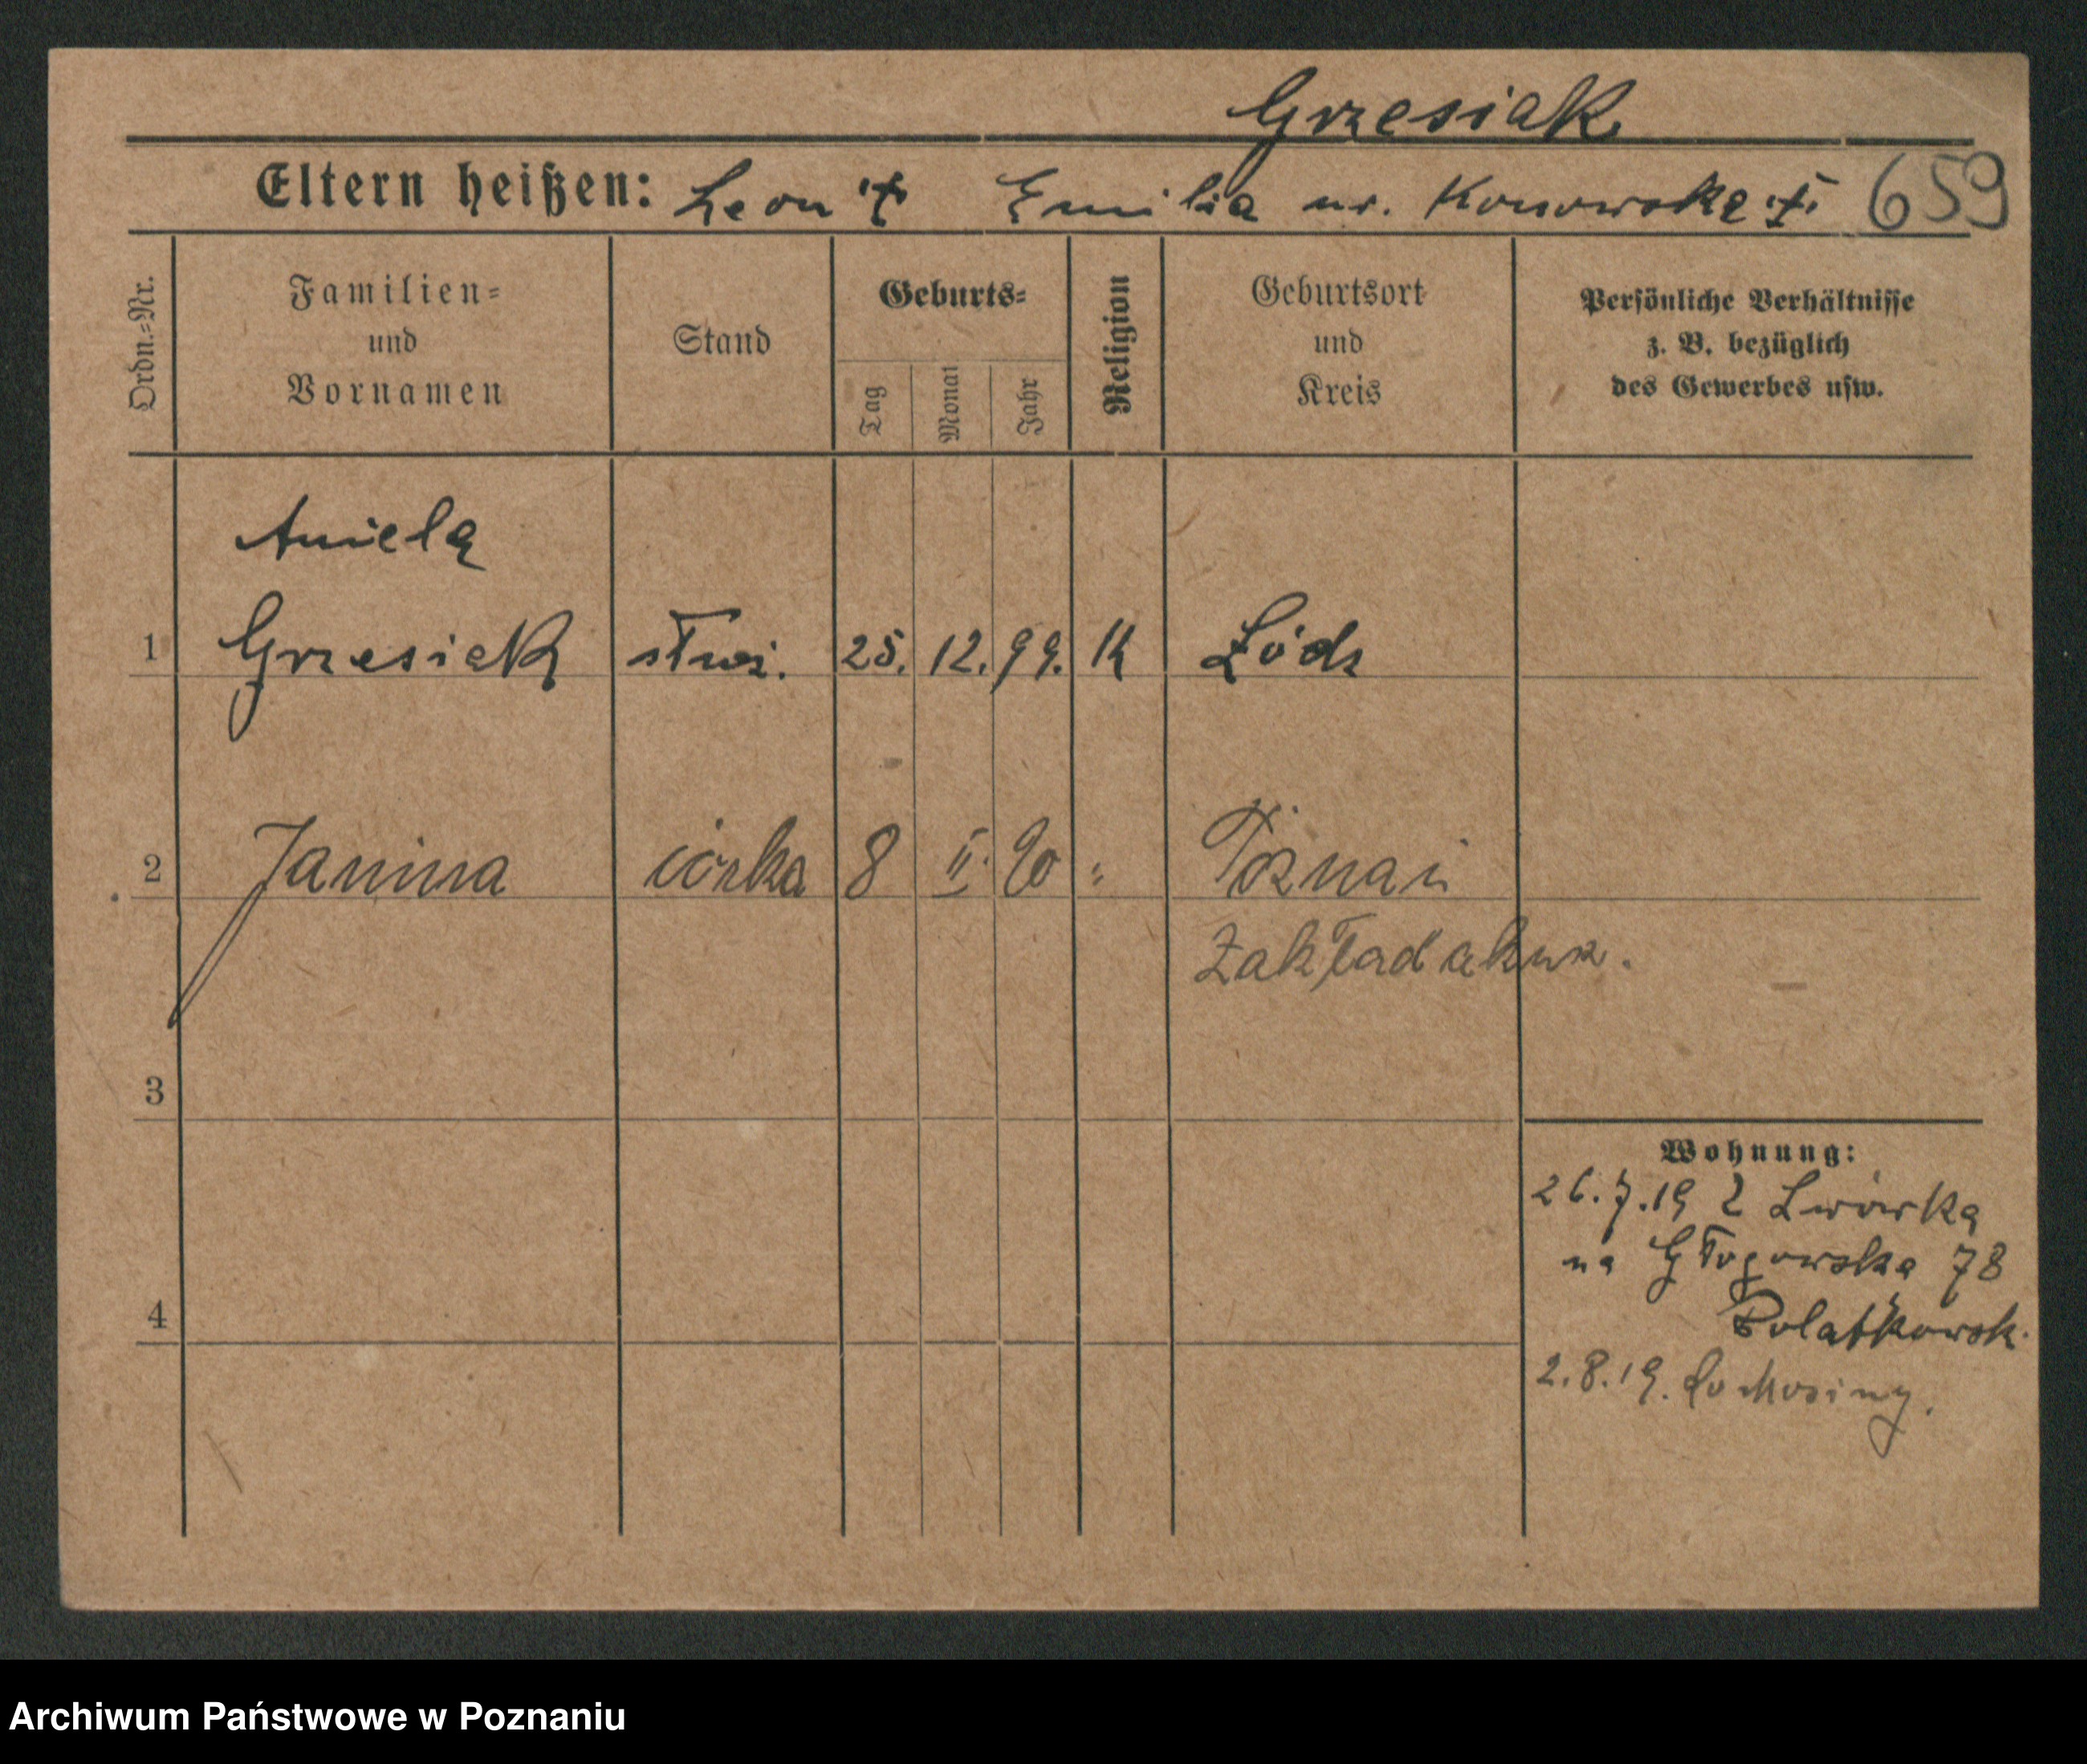 Grzesiak
Eltern heißen: Leon † Emilia ur. Konowska † 659
Ordn.=Nr.
Familien=
und
Vornamen
Stand
Geburts=
Tag
Monat
Jahr
Religion
Geburtsort
und
Kreis
Persönliche Verhältnisse
z. B. bezüglich
des Gewerbes usw.
Aniela
1 Grzesiak służ. 25. 12. 99. K Łódz
2 Janina córka 8 II. 20 " Poznań
Zakład akusz.
3
4
Wohnung:
26.7.19 z Lwówka
na Głogowska 78
Polatkowsk.
2.8.19. do Mosiny.
Archiwum Państwowe w Poznaniu